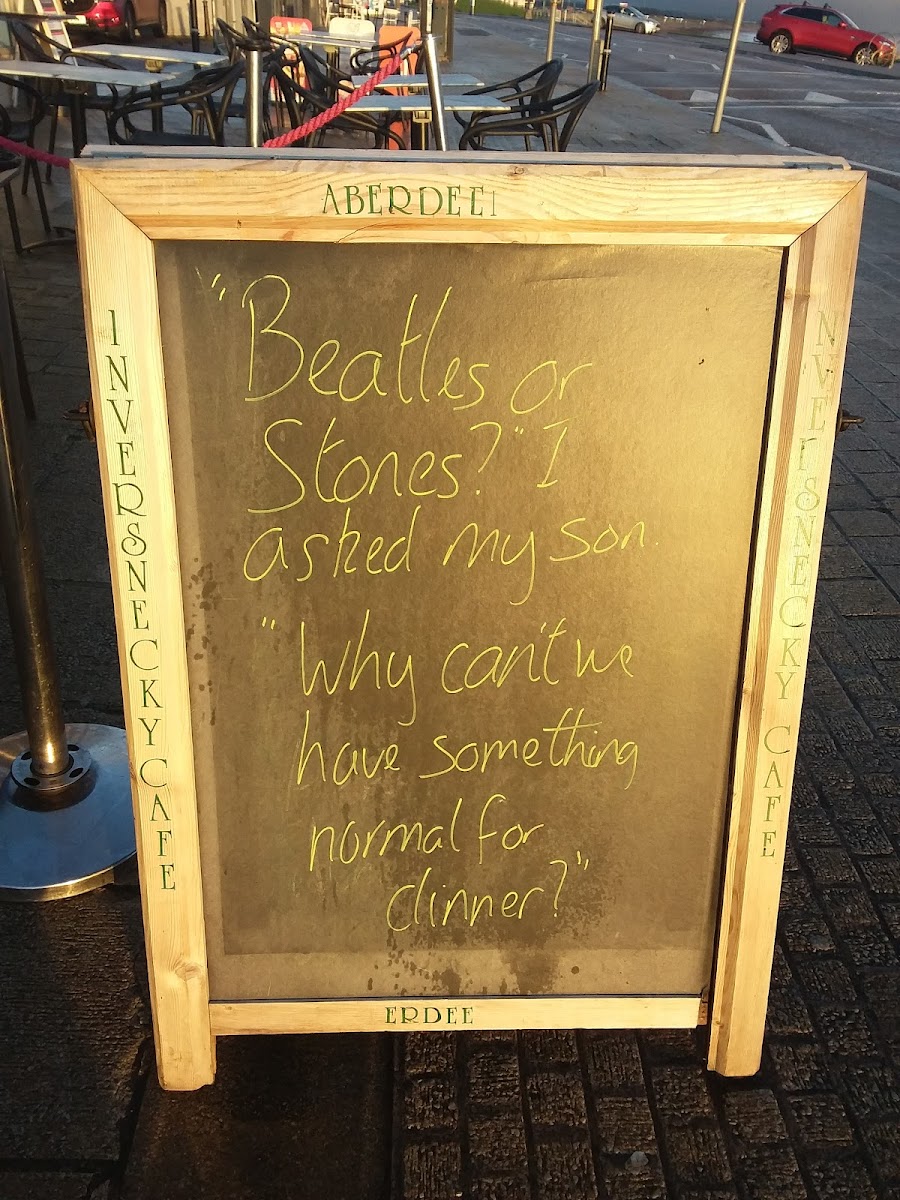 ABERDEE
INVERSNECKY CAFE
"Beatles or
Stones?" I
asked my son.
"Why can't we
have something
normal for
dinner?"
NVERSNECKY CAFE
ERDEE